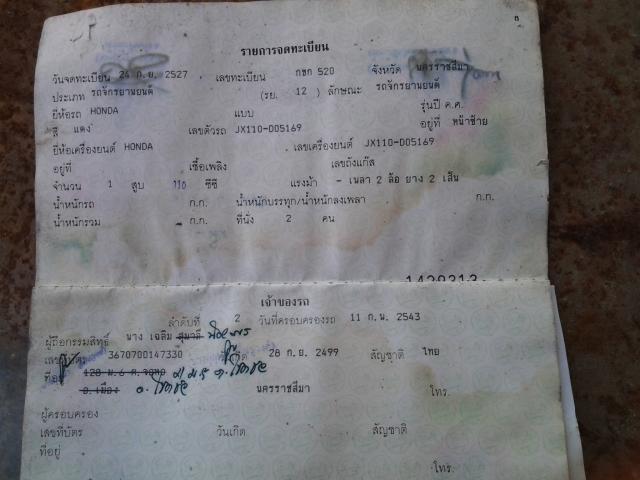 รายการจดทะเบียน
วันจดทะเบียน 24 ก.ย. 2527 เลขทะเบียน กษก 520 จังหวัด นครราชสีมา
ประเภท รถจักรยานยนต์ (รย. 12 ) ลักษณะ รถจักรยานยนต์
ยี่ห้อรถ HONDA แบบ รุ่นปี ค.ศ.
สี แดง เลขตัวรถ JX110-005169 อยู่ที่ หน้าซ้าย
ยี่ห้อเครื่องยนต์ HONDA เลขเครื่องยนต์ JX110-005169
อยู่ที่ เชื้อเพลิง เลขถังแก๊ส
จำนวน 1 สูบ 110 ซีซี แรงม้า - เพลา 2 ล้อ ยาง 2 เส้น
น้ำหนักรถ ก.ก. น้ำหนักบรรทุก/น้ำหนักลงเพลา ก.ก.
น้ำหนักรวม ก.ก. ที่นั่ง 2 คน
เจ้าของรถ
ลำดับที่ 2 วันที่ครอบครองรถ 11 ก.พ. 2543
ผู้ถือกรรมสิทธิ์ นาง เฉลิม สุมาลี
เลขที่บัตร 3670700147330 วันเกิด 28 ก.ย. 2499 สัญชาติ ไทย
ที่อยู่ 128 ม.6 ต.จอหอ
อ.เมือง อ. นครราชสีมา โทร.
ผู้ครอบครอง
เลขที่บัตร วันเกิด สัญชาติ
ที่อยู่
โทร.